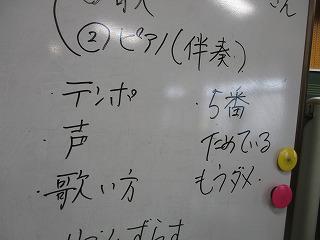 さん
② ピアノ(伴奏)
・テンポ
・声
・歌い方
・5番
ためている
もうダメ